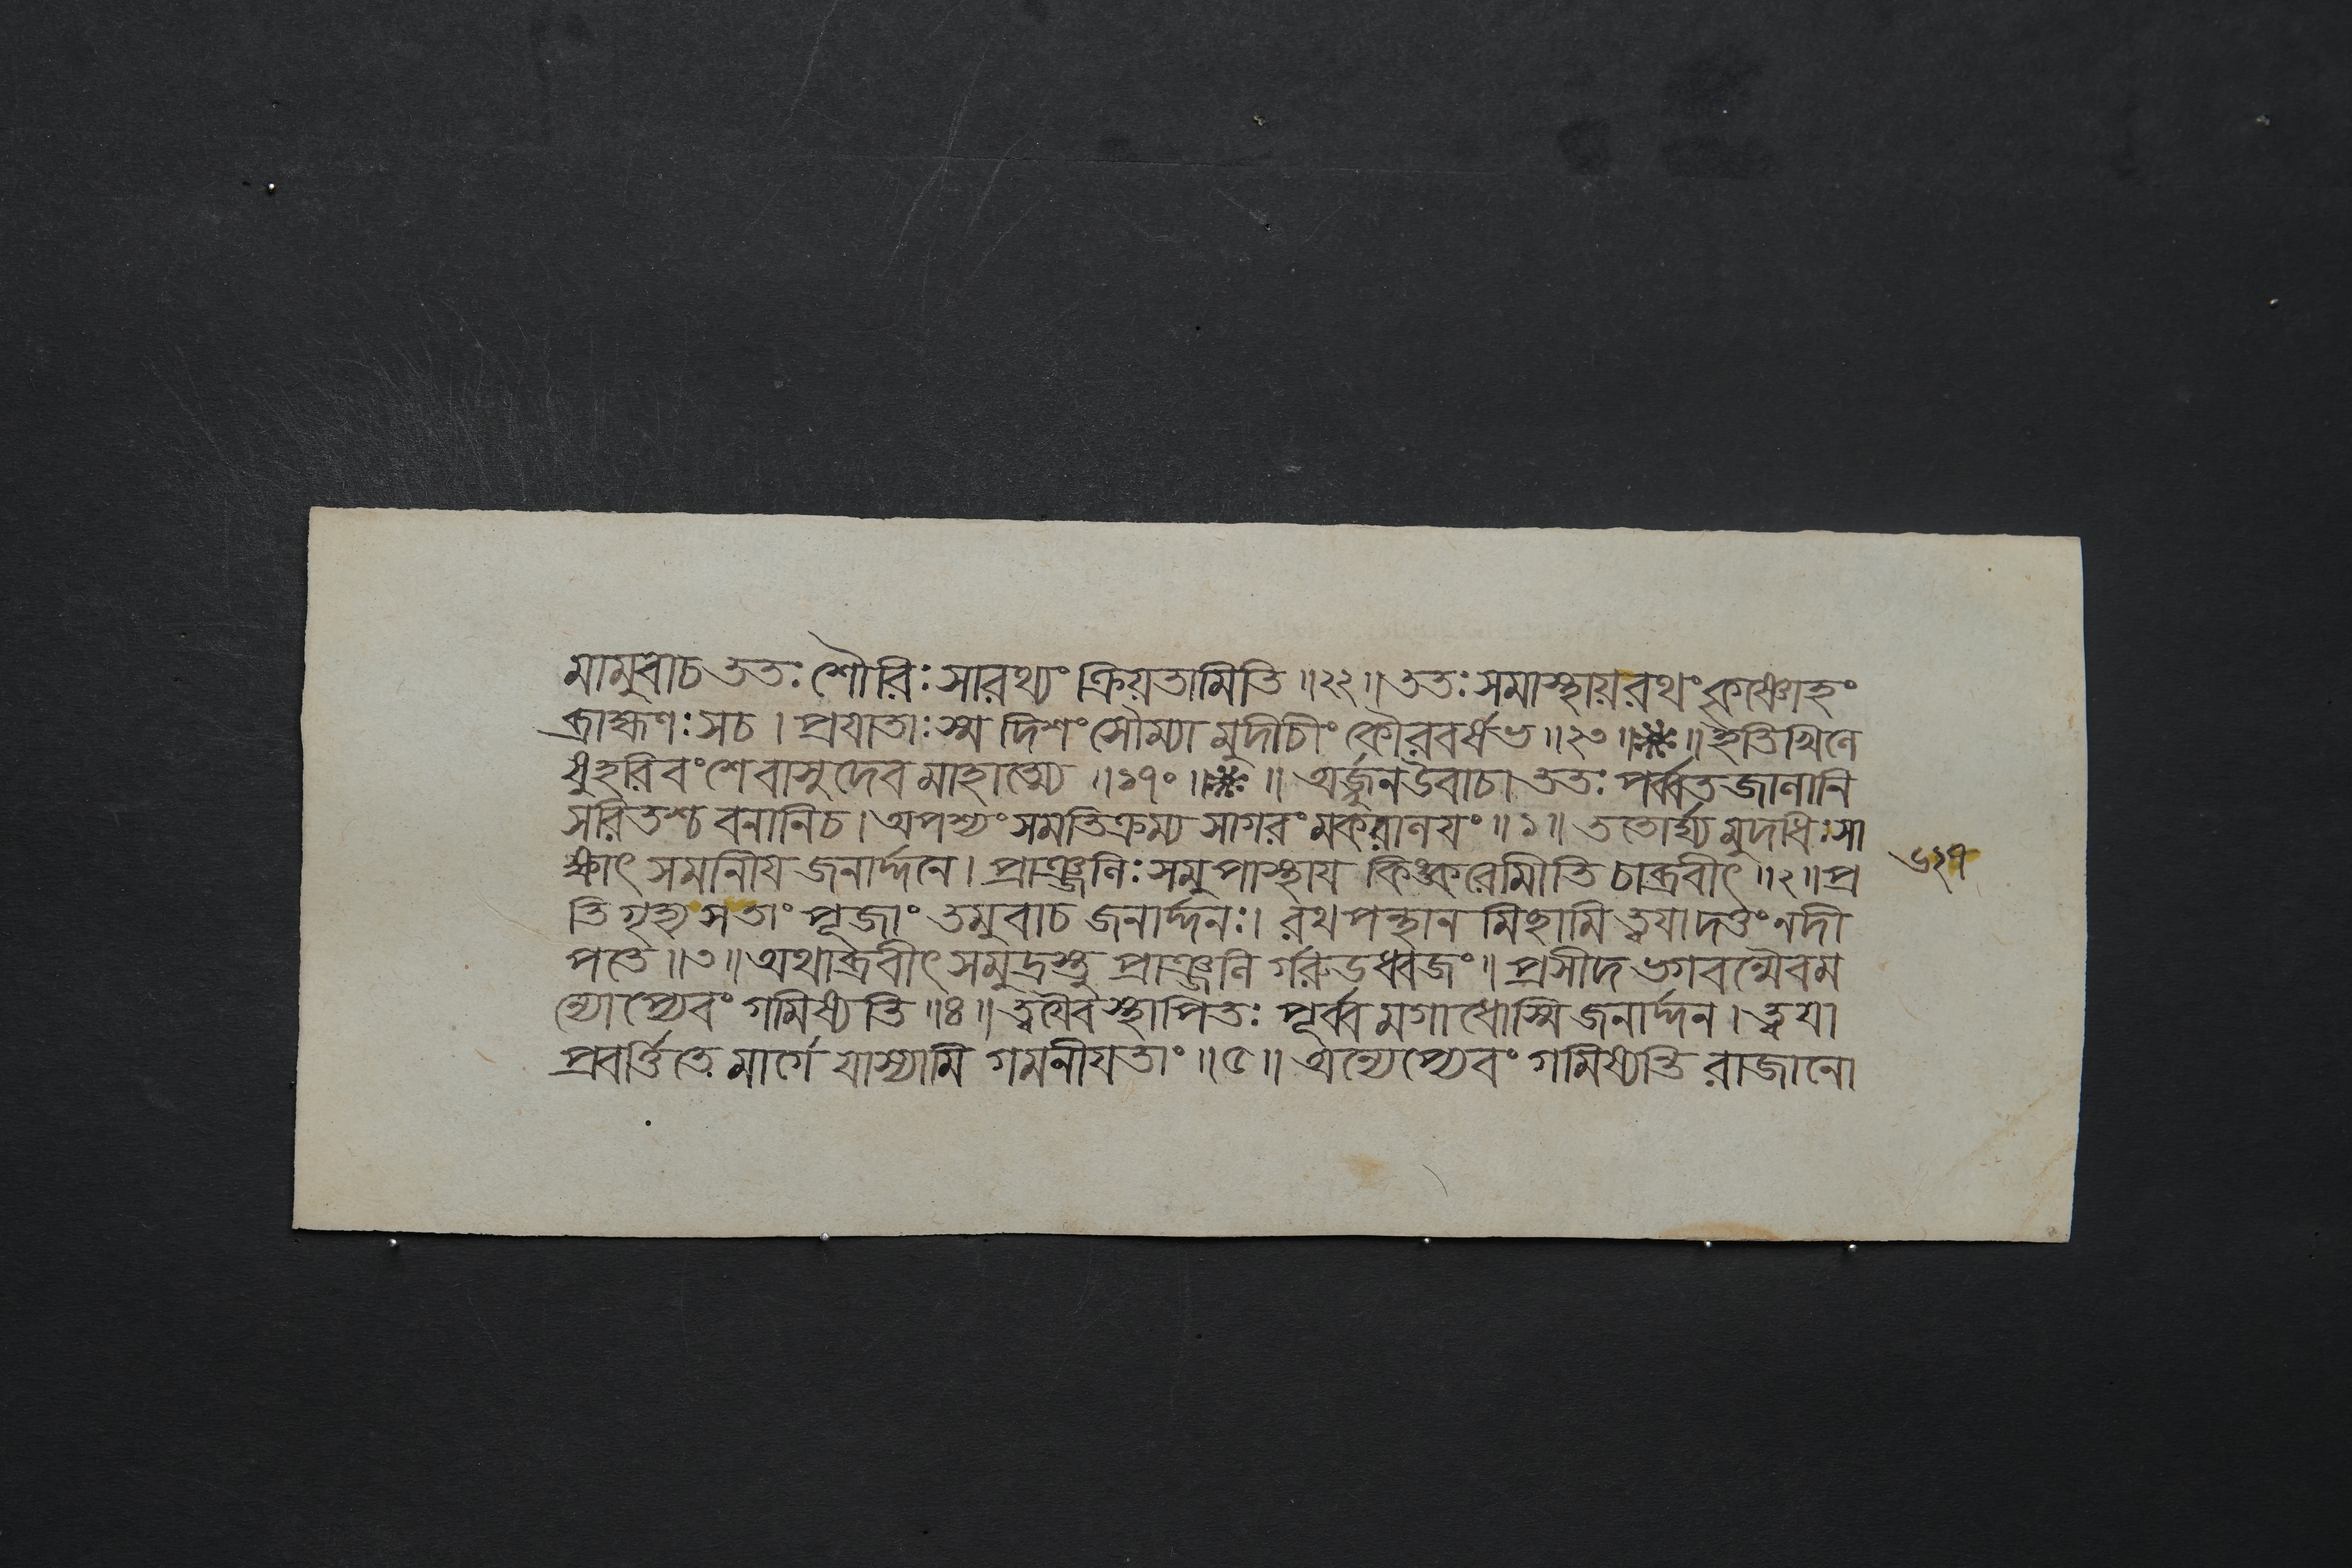 মামুবাচ ততঃ শৌরিঃ সারথ্যং ক্রিয়তামিতি ॥২২॥ ততঃ সমাস্থায় রথং কৃষ্ণোহং
ব্রাহ্মণঃ সচ । প্রযাতাঃ স্ম দিশং সৌম্যা মুদীচীং কৌরবর্ষভ ॥২৩॥❋॥ ইতি খিলে
ষু হরিবংশে বাসুদেব মাহাত্ম্যে ॥১৭০॥❋॥ অর্জ্জুন উবাচ। ততঃ পর্ব্বত জালানি
সরিতশ্চ বনানিচ। অপশ্যং সমতিক্রম্য সাগরং মকরালযং ॥১॥ ততোর্ঘ্য মুদধিঃ সা
ক্ষাৎ সমানীয জনার্দ্দনে। প্রাঞ্জলিঃ সমুপাস্থায কিঙ্করোমীতি চাব্রবীৎ ॥২॥ প্র
তি গৃহ্য সতাং পূজাং তমুবাচ জনার্দ্দনঃ। রথ পন্থান মিছামি ত্বযা দত্তং নদী
পতে ॥৩॥ অথাব্রবীৎ সমুদ্রস্তু প্রাঞ্জলি র্গরুডধ্বজং॥ প্রসীদ ভগবন্মৈবম
ন্যোপ্যেবং গমিষ্যতি ॥৪॥ ত্বযৈব স্থাপিতঃ পূর্ব্ব মগাধোস্মি জনার্দ্দন। ত্বযা
প্রবর্ত্তিতে মার্গে যাস্যামি গমনীযতাং ॥৫॥ অন্যেপ্যেবং গমিষ্যন্তি রাজানো
৬২৭